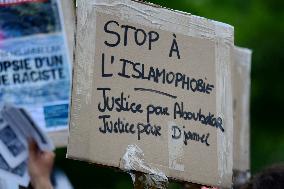 OPSIE D'UN
RE RACISTE
STOP À
L'ISLAMOPHOBIE
Justice pour Aboubakar
Justice pour Djamel